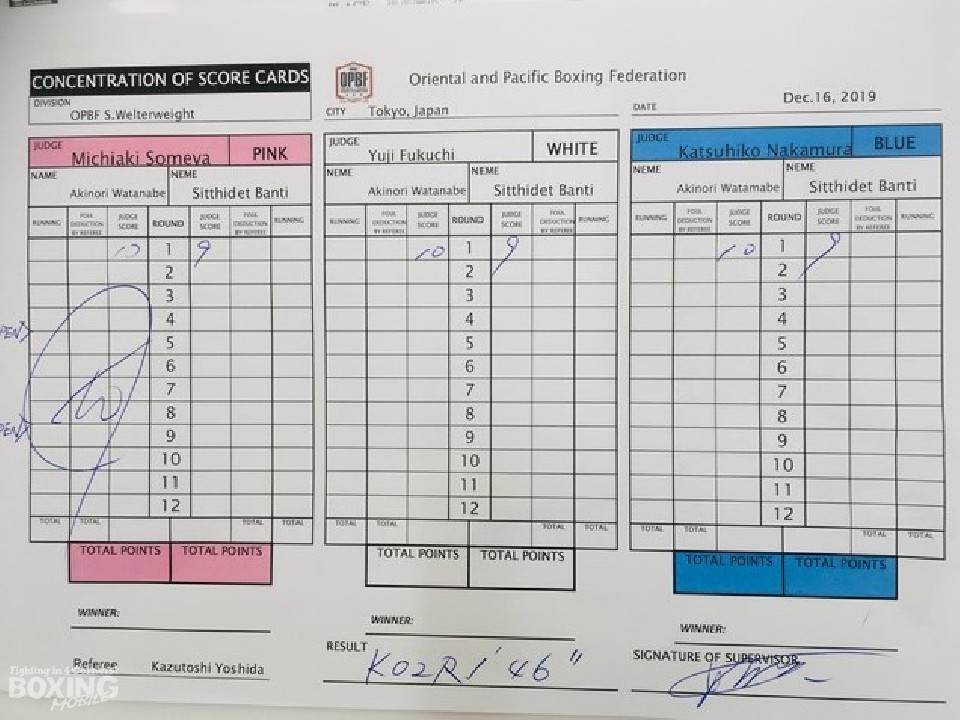 CONCENTRATION OF SCORE CARDS
OPBF
Oriental and Pacific Boxing Federation
DIVISION
OPBF S.Welterweight
CITY Tokyo, Japan
DATE Dec.16, 2019
JUDGE Michiaki Someya PINK
NAME Akinori Watanabe NEME Sitthidet Banti
RUNNING FOUL DEDUCTION BY REFEREE JUDGE SCORE ROUND JUDGE SCORE FOUL DEDUCTION BY REFEREE RUNNING
10 1 9
2
3
4
5
6
7
8
9
10
11
12
TOTAL TOTAL TOTAL TOTAL
TOTAL POINTS TOTAL POINTS
WINNER:
Referee Kazutoshi Yoshida
JUDGE Yuji Fukuchi WHITE
NEME Akinori Watanabe NEME Sitthidet Banti
RUNNING FOUL DEDUCTION BY REFEREE JUDGE SCORE ROUND JUDGE SCORE FOUL DEDUCTION BY REFEREE RUNNING
10 1 9
2
3
4
5
6
7
8
9
10
11
12
TOTAL TOTAL TOTAL TOTAL
TOTAL POINTS TOTAL POINTS
WINNER:
RESULT KO2R1'46"
JUDGE Katsuhiko Nakamura BLUE
NEME Akinori Watamabe NEME Sitthidet Banti
RUNNING FOUL DEDUCTION BY REFEREE JUDGE SCORE ROUND JUDGE SCORE FOUL DEDUCTION BY REFEREE RUNNING
10 1 9
2
3
4
5
6
7
8
9
10
11
12
TOTAL TOTAL TOTAL TOTAL
TOTAL POINTS TOTAL POINTS
WINNER:
SIGNATURE OF SUPERVISOR
PEN
PEN
Fighting in 4 Corner
BOXING
MOBILE